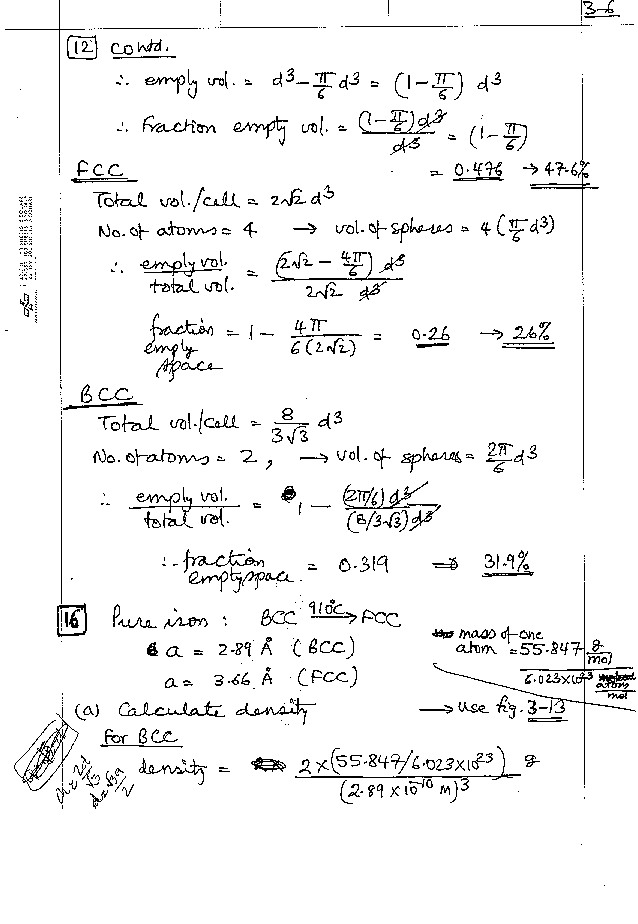 3-6
12 contd.
∴ empty vol. = d³ - π/6 d³ = (1 - π/6) d³
∴ Fraction empty vol. = (1 - π/6) d³ / d³ = (1 - π/6)
= 0.476 → 47.6%
FCC
Total vol./cell = 2√2 d³
No. of atoms = 4 → vol. of spheres = 4 (π/6 d³)
∴ empty vol. / total vol. = (2√2 - 4π/6) d³ / 2√2 d³
fraction empty space = 1 - 4π / 6(2√2) = 0.26 → 26%
BCC
Total vol./cell = 8 / 3√3 d³
No. of atoms = 2, → vol. of spheres = 2π/6 d³
∴ empty vol. / total vol. = 1 - (2π/6) d³ / (8/3√3) d³
∴ fraction empty space = 0.319 ⇒ 31.9%
16 Pure iron: BCC 910°C → FCC
a = 2.89 Å (BCC)
mass of one atom = 55.847 g/mol / 6.023×10²³ atom/mol
a = 3.66 Å (FCC)
(a) Calculate density → use fig. 3-13
For BCC
density = 2 × (55.847/6.023×10²³) g / (2.89 × 10⁻¹⁰ m)³